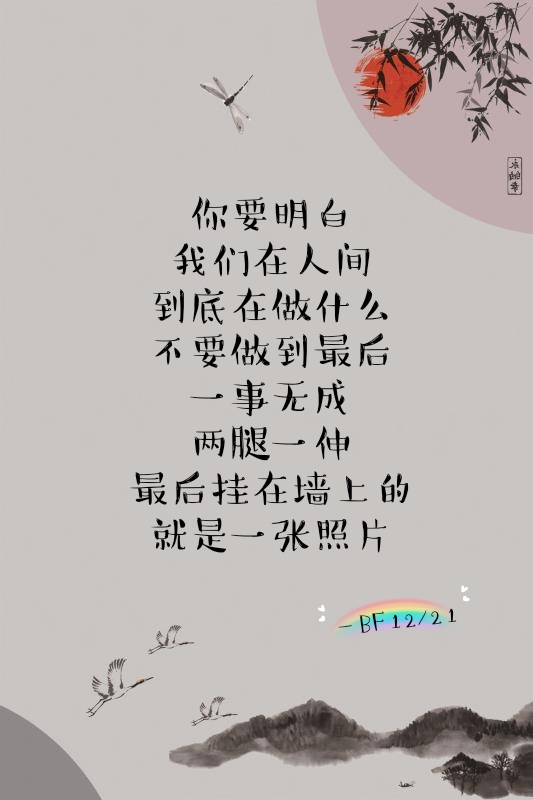 你要明白
我们在人间
到底在做什么
不要做到最后
一事无成
两腿一伸
最后挂在墙上的
就是一张照片
-BF 12/21